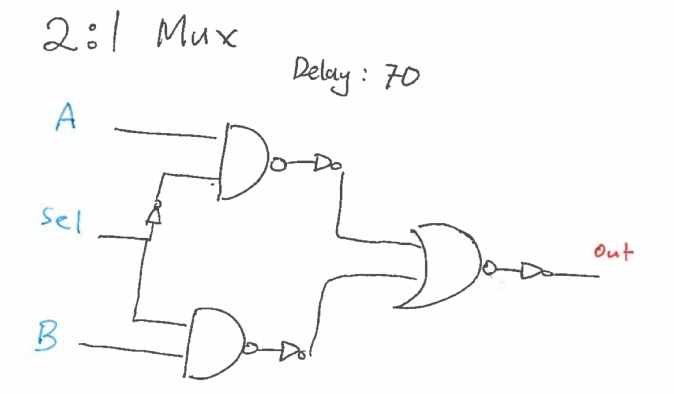 2:1 Mux
Delay: 70
A
Sel
Out
B